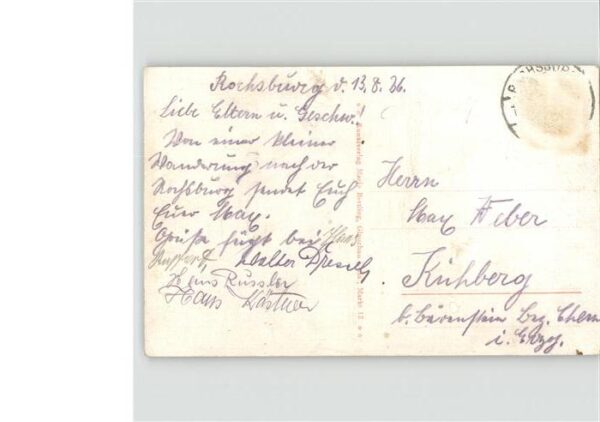 Rochsburg d. 13.8.36.
Liebe Eltern u. Geschw.!
Von einer kleinen
Wanderung nach der
Rochsburg sendet Euch
Euer Max.
Grüße fügt bei Hans
Ruppert, Walter
Hans Russler
Hans Kästner
Herrn
Max Weber
Kühberg
b. Bärenstein Bez. Chem
i. Erzg.